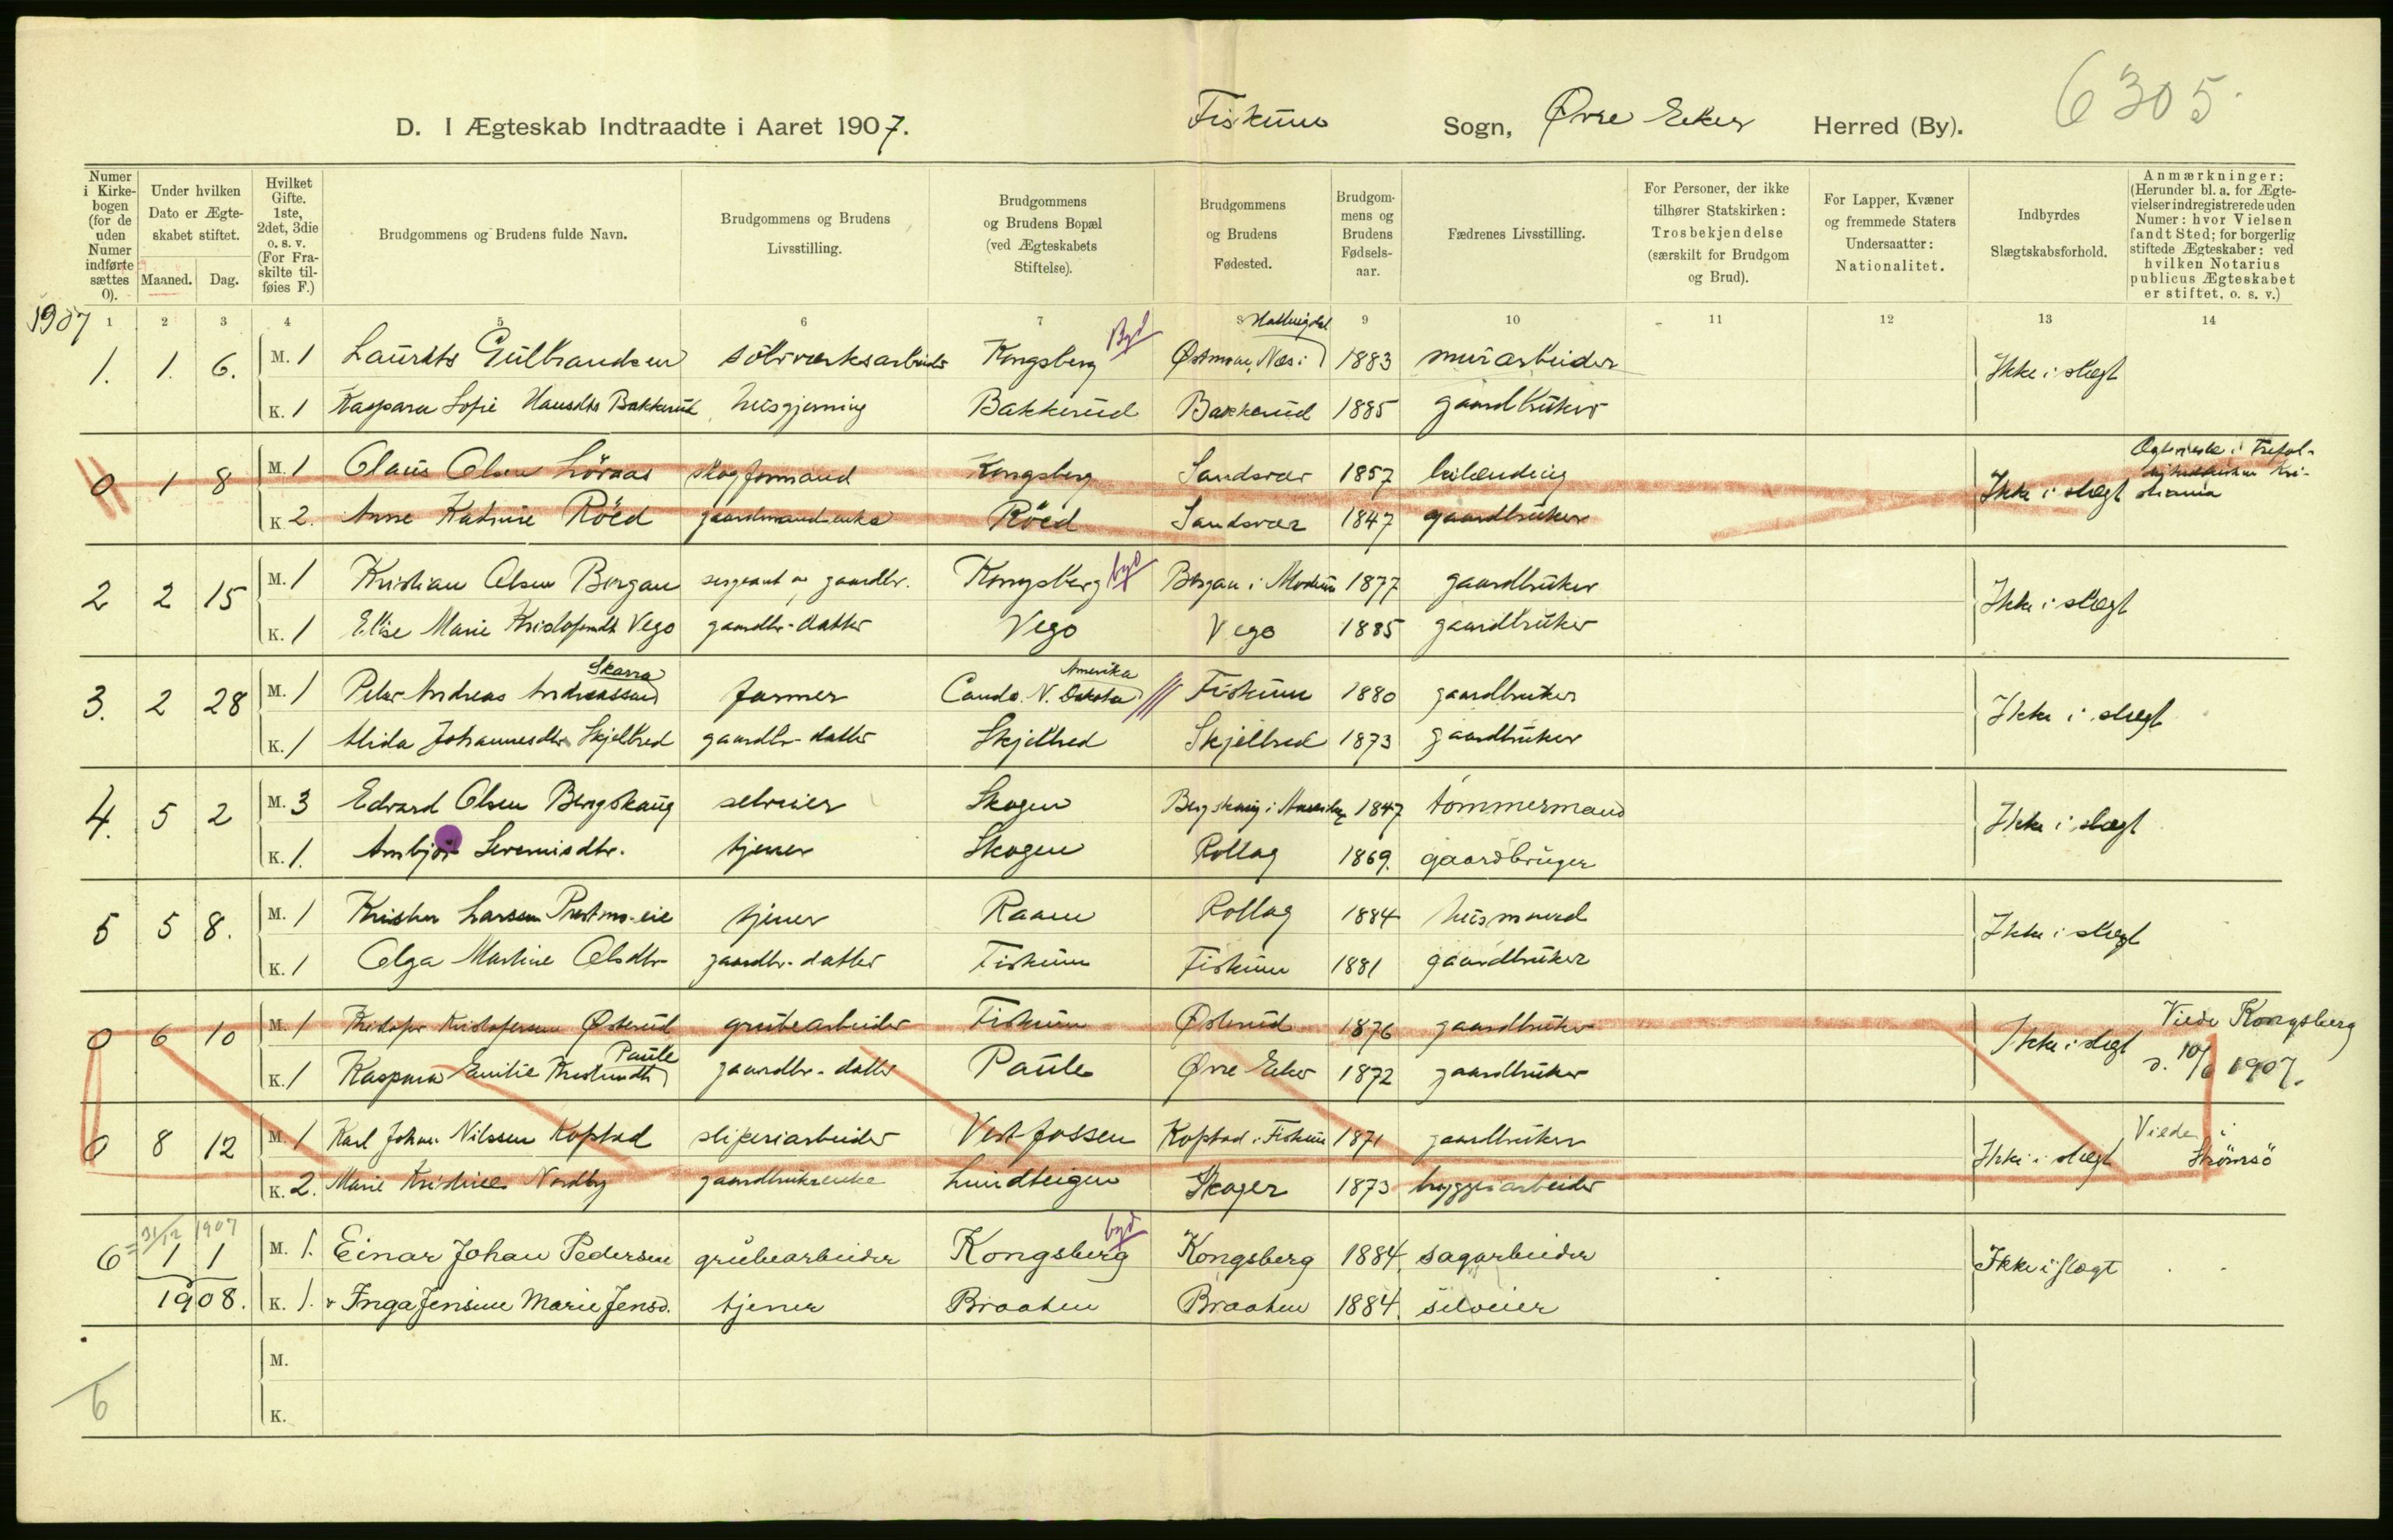 6305
D. I Ægteskab Indtraadte i Aaret 1907. Fiskum Sogn, Øvre Eker Herred (By).
Numer i Kirke-bogen (for de uden Numer indførte sættes 0).
Under hvilken Dato er Ægte-skabet stiftet.
Maaned. Dag.
Hvilket Gifte. 1ste, 2det, 3die o. s. v. (For Fra-skilte til-føies F.)
Brudgommens og Brudens fulde Navn.
Brudgommens og Brudens Livsstilling.
Brudgommens og Brudens Bopæl (ved Ægteskabets Stiftelse).
Brudgommens og Brudens Fødested.
Brudgom-mens og Brudens Fødsels-aar.
Fædrenes Livsstilling.
For Personer, der ikke tilhører Statskirken: Trosbekjendelse (særskilt for Brudgom og Brud).
For Lapper, Kvæner og fremmede Staters Undersaatter: Nationalitet.
Indbyrdes Slægtskabsforhold.
Anmærkninger: (Herunder bl. a. for Ægte-vielser indregistrerede uden Numer: hvor Vielsen fandt Sted; for borgerlig stiftede Ægteskaber: ved hvilken Notarius publicus Ægteskabet er stiftet, o. s. v.)
1907 1 2 3 4 5 6 7 8 9 10 11 12 13 14
Byd Hallingdal
1. 1. 6. M. 1 Laurits Gulbrandsen sölvverksarbeider Kongsberg Østmoene, Nes i 1883 murarbeider Ikke i slegt
K. 1 Kaspara Sofie Hansdtr Bakkerud husgjerning Bakkerud Bakkerud 1885 gaardbruker
0 1 8 M. 1 Olaus Olsen Löraas skogformand Kongsberg Sandsvær 1857 leilænding Ikke i slegt
K 2. Anne Katrine Röed gaardmandsenke Röed Sandsvær 1847 gaardbruker
2 2 15 M. 1 Kristian Olsen Borgan sergeant og gaardbr. Kongsberg byd Borgan i Modum 1877 gaardbruker Ikke i slegt
K. 1 Elise Marie Kristofersdt Vego gaardbr-datter Vego Vego 1885 gaardbruker
Skarra Amerika
3. 2 28 M. 1 Peter Andreas Andreassen farmer Cando. N. Dakota Fiskum 1880 gaardbruker Ikke i slegt
K. 1 Alida Johannesdtr Skjelbred gaardbr-datter Skjelbred Skjelbred 1873 gaardbruker
4. 5 2 M. 3 Edvard Olsen Bergskaug selveier Skogen Bergskaug i 1847 tömmermand Ikke i slegt
K. 1. Anbjör dtr. tjener Skogen Rollag 1869. gaardbruger
5 5 8. M. 1 Larsen tjener Raaen Rollag 1884 husmand Ikke i slegt
K. 1 Olga Martine Olsdtr gaardbr-datter Fiskum Fiskum 1881 gaardbruker
0 6 10 M. 1 Kristofer Kristofersen Østerud grubearbeider Fiskum Østerud 1876 gaardbruker Ikke i slegt Viede Kongsberg
Paule
K. 1 Kaspara Emilie gaardbr-datter Paule Øvre Eker 1872 gaardbruker d. 10/6 1907.
0 8 12 M. 1 Karl Johan Nilssen Kopstad sliperiarbeider Vestfossen Kopstad i Fiskum 1871 gaardbruker Ikke i slegt Viede i Strömsö
K. 2. Marie Kristine Nordby gaardbrukrenke Lundteigen Skoger 1873 bryggeriarbeider
31/12 1907 byd
6 1 1 M. 1. Einar Johan Pedersen grubearbeider Kongsberg Kongsberg 1884. sagarbeider Ikke i slægt
1908. K. 1. Inga Jensine Marie Jensd. tjener Braaten Braaten 1884. selveier
M.
6 K.